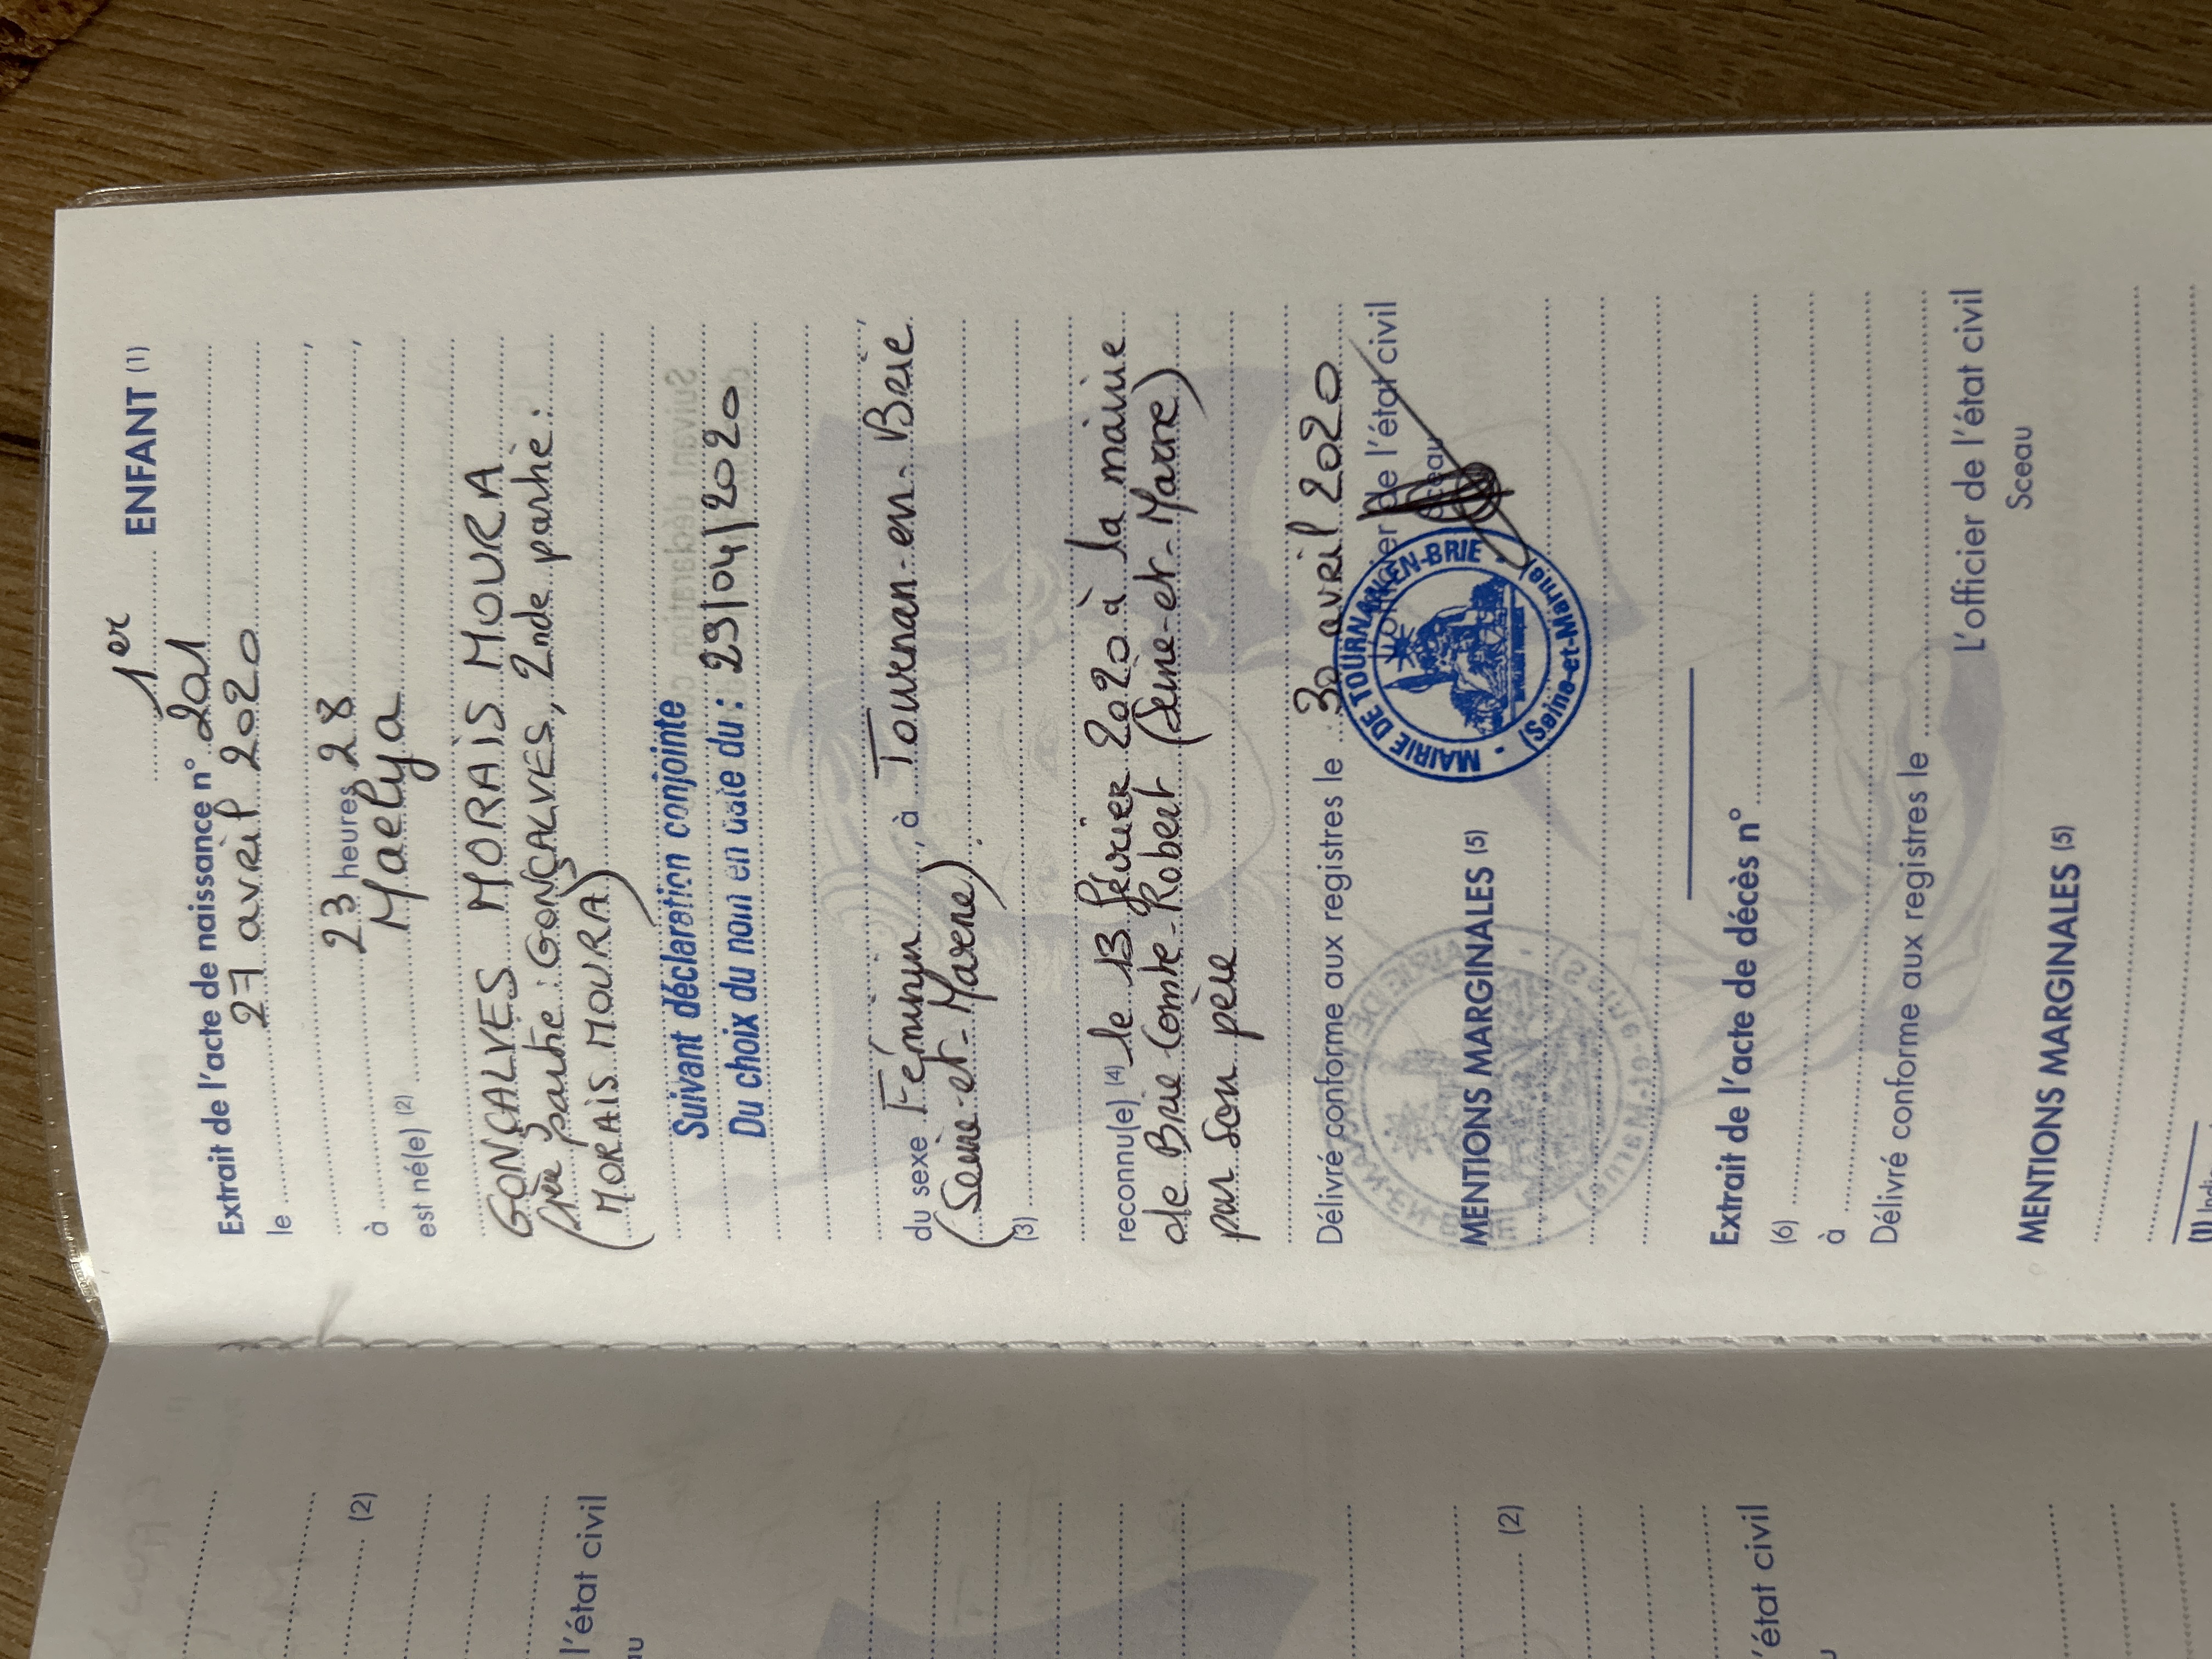 1er ENFANT (1)
Extrait de l'acte de naissance n° 201
le 27 avril 2020
à 23 heures 28
est né(e) (2) Maelya
GONÇALVES MORAIS MOURA
(1ère partie : GONÇALVES, 2nde partie :
MORAIS MOURA)
Suivant déclaration conjointe
Du choix du nom en date du : 29/04/2020
du sexe Féminin, à Tournan-en-Brie,
(Seine-et-Marne).
(3)
reconnu(e) (4) le 13 février 2020 à la mairie
de Brie-Comte-Robert (Seine-et-Marne)
par son père
Délivré conforme aux registres le 30 avril 2020
L'officier de l'état civil
Sceau
MAIRIE DE TOURNAN-EN-BRIE
(Seine-et-Marne)
MENTIONS MARGINALES (5)
Extrait de l'acte de décès n°
(6)
à
Délivré conforme aux registres le
L'officier de l'état civil
Sceau
MENTIONS MARGINALES (5)
(2)
l'état civil
(2)
'état civil